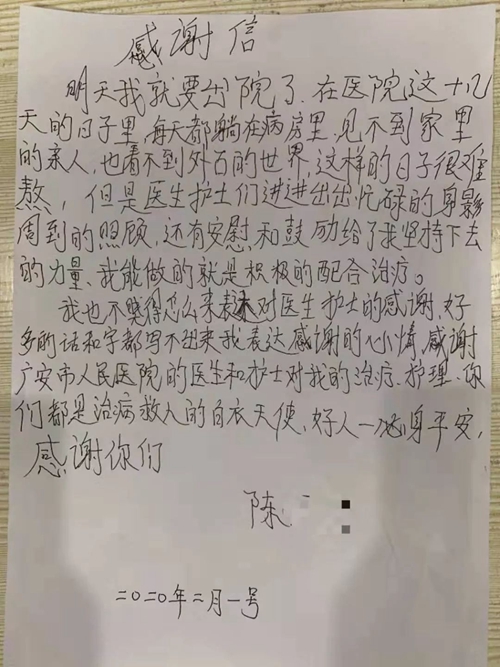 感谢信
明天我就要出院了.在医院这十几
天的日子里,每天都躺在病房里.见不到家里
的亲人,也看不到外面的世界,这样的日子很难
熬,但是医生护士们进进出出忙碌的身影
周到的照顾,还有安慰和鼓励给了我坚持下去
的力量、我能做的就是积极的配合治疗。
我也不晓得怎么来表达对医生护士的感谢.好
多的话和字都写不出来我表达感谢的心情,感谢
广安市人民医院的医生和护士对我的治疗.护理.你
们都是治病救人的白衣天使、好人一生平安,
感谢你们
陈
二〇二〇年二月一号